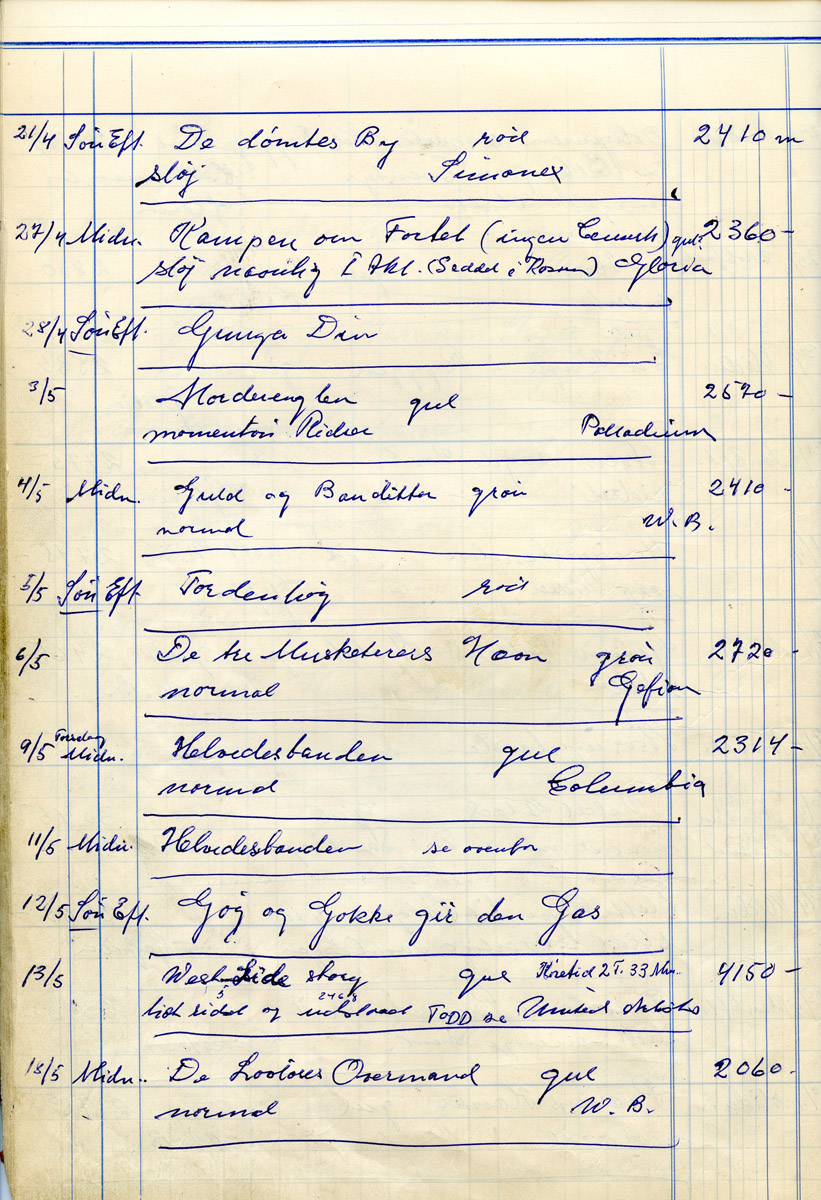 21/4 Søn Eft. De dømtes By rød 2410 m
støj Simonex
27/4 Midn. Kampen om Fortet (ingen Censurk) gul. 2360 -
støj navnlig I Akt. (Seddel i Kassen) Gloria
28/4 Søn Eft. Gunga Din
3/5 Morderenglen gul 2570 -
momentvis Ridser Palladium
4/5 Midn. Guld og Banditter grøn 2410 -
normal W. B.
5/5 Søn Eft. Tordenhøj rød
6/5 De tre Musketerers Hævn grøn 2720 -
normal Gefion
Torsdag
9/5 Midn. Helvedesbanden gul 2314 -
normal Columbia
11/5 Midn. Helvedesbanden se ovenfor
12/5 Søn Eft. Gøg og Gokke gir den Gas
13/5 West Side story gul Køretid 2 T. 33 Min. 4150 -
lidt slidt og TODD se United Artists
18/5 Midn. De Lovløses Overmand gul 2060 -
normal W. B.